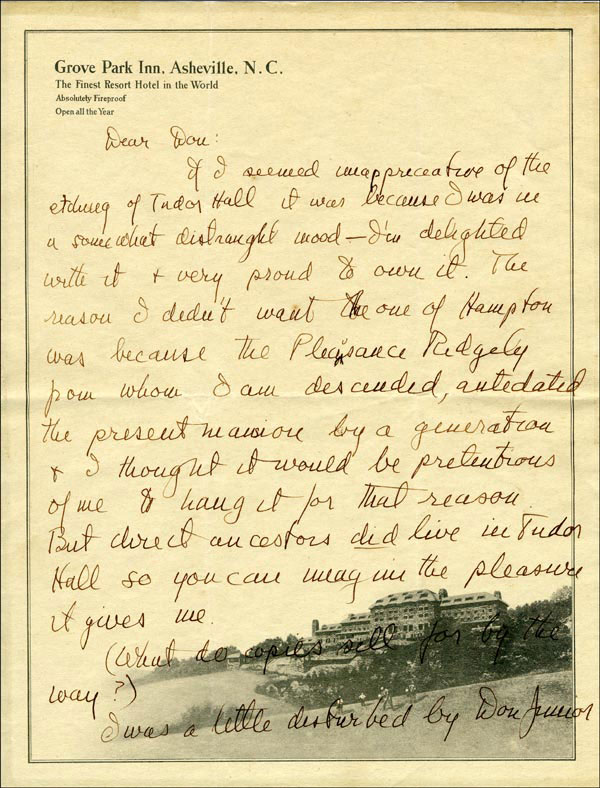 Grove Park Inn. Asheville, N. C.
The Finest Resort Hotel in the World
Absolutely Fireproof
Open all the Year
Dear Don:
If I seemed inappreceative of the
etching of Tudor Hall it was because I was in
a somewhat distraught mood — I'm delighted
with it + very proud to own it. The
reason I dedn't want the one of Hampton
was because the Pleasance Ridgely
from whom I am descended, antedated
the present mansion by a generation
+ I thought it would be pretentious
of me to hang it for that reason.
But direct ancestors did live in Tudor
Hall so you can imagine the pleasure
it gives me.
(What do copies sell for by the
way?)
I was a little disturbed by Don Junior